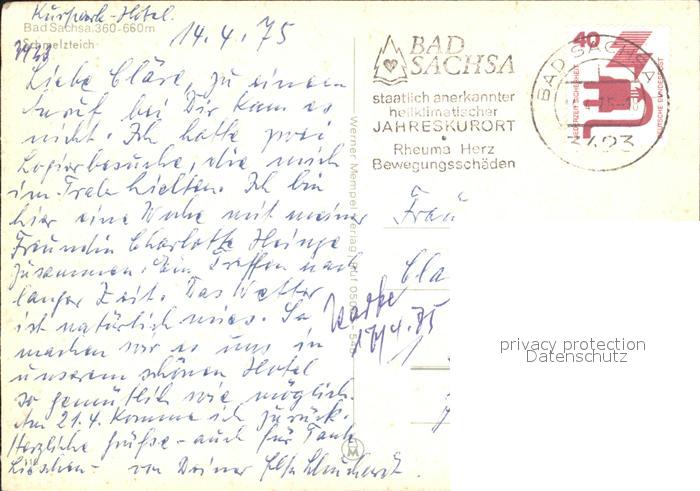 Kurpark-Hotel.
Bad Sachsa 360-660m
Schmelzteich
14.4.75
Liebe Cläre, zu einem
Anruf bei Dir kam es
nicht. Ich hatte zwei
Logierbesuche, die mich
im Trab hielten. Ich bin
hier eine Woche mit meiner
Freundin Charlotte Heinze
zusammen. Ein Treffen nach
langer Zeit. Das Wetter
ist natürlich mies. So
machen wir es uns in
unserem schönen Hotel
so gemütlich wie möglich.
Am 21.4. komme ich zurück.
Herzliche Grüße - auch für Tante
Lieschen - von Deiner Elfe
Werner Mempel Verlag
BAD
SACHSA
staatlich anerkannter
heilklimatischer
JAHRESKURORT
Rheuma Herz
Bewegungsschäden
BAD SACHSA
3423
40
JEDERZEIT SICHERHEIT
DEUTSCHE BUNDESPOST
Frau
Clä
Karte
17/4.75
privacy protection
Datenschutz